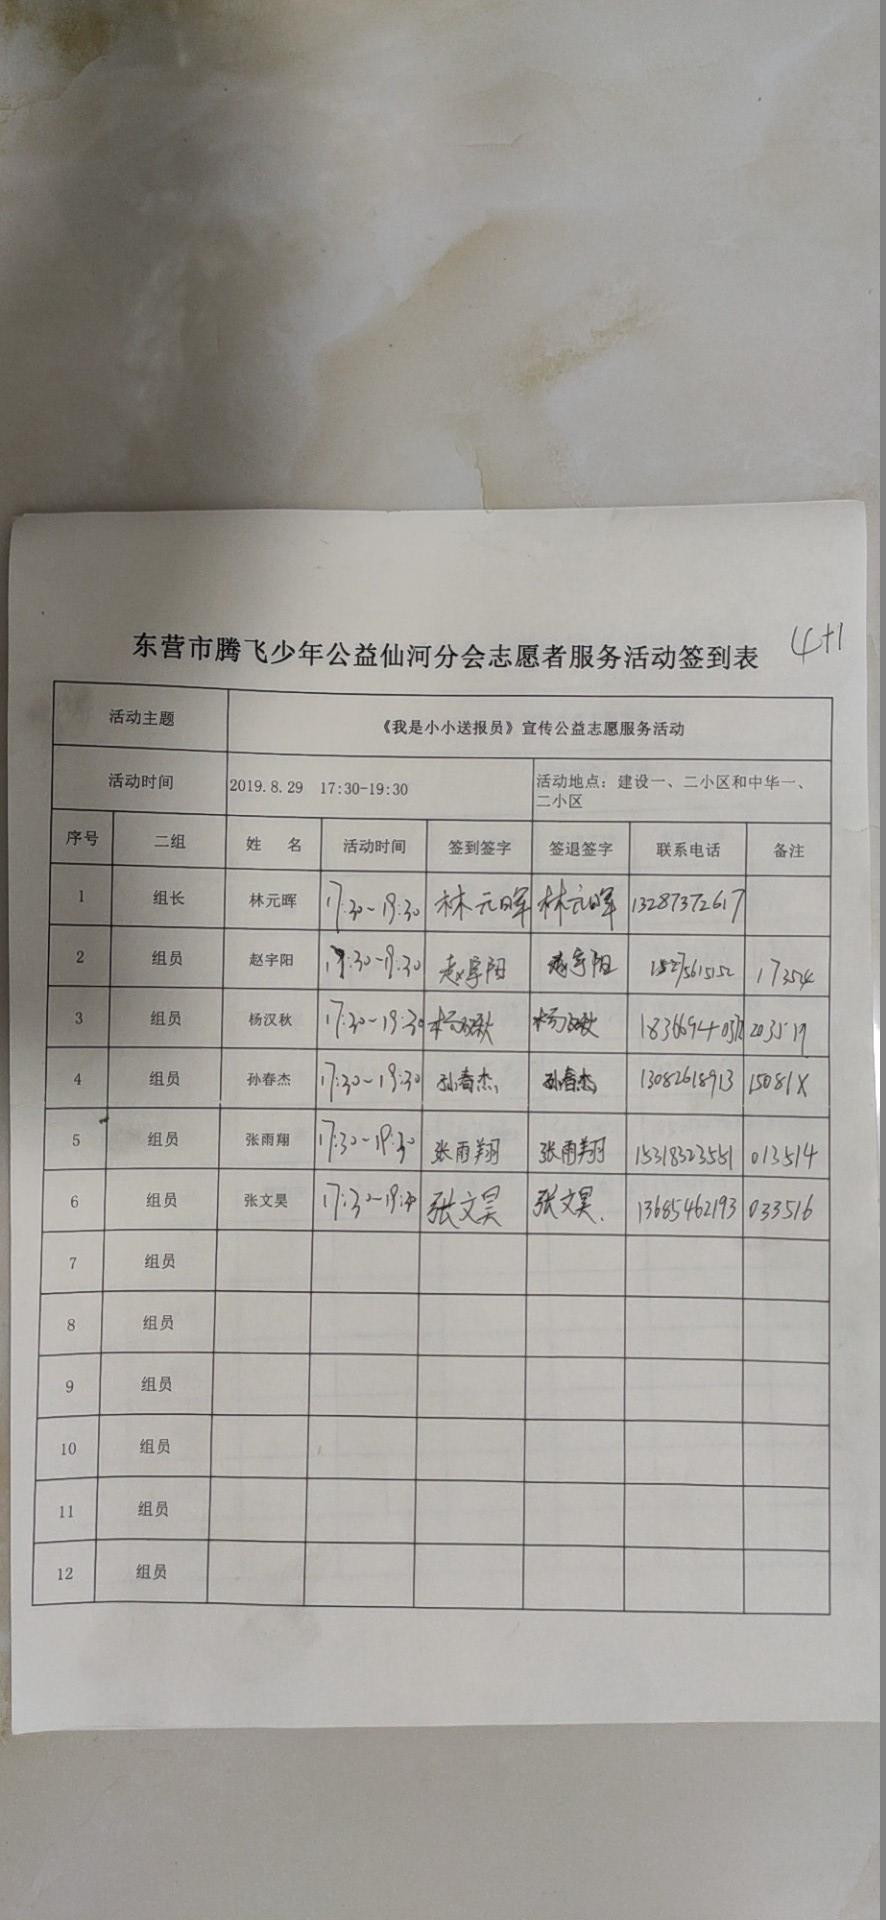 东营市腾飞少年公益仙河分会志愿者服务活动签到表
4+1
活动主题 《我是小小送报员》宣传公益志愿服务活动
活动时间 2019.8.29 17:30-19:30 活动地点：建设一、二小区和中华一、
二小区
序号 二组 姓 名 活动时间 签到签字 签退签字 联系电话 备注
1 组长 林元晖 17:30-19:30 林元晖 林元晖 13287372617
2 组员 赵宇阳 17:30-19:30 赵宇阳 赵宇阳 17352
3 组员 杨汉秋 17:30-19:30 杨汉秋 杨汉秋 203519
4 组员 孙春杰 17:30-19:30 孙春杰 孙春杰 13082618913 15081X
5 组员 张雨翔 17:30-19:30 张雨翔 张雨翔 15318323551 013514
6 组员 张文昊 17:30-19:30 张文昊 张文昊 13685462193 033516
7 组员
8 组员
9 组员
10 组员
11 组员
12 组员